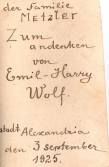 der Familie
Metzler
Zum
andenken
von
Emil-Harry
Wolf.
Alexandria
den 3 september
1925.